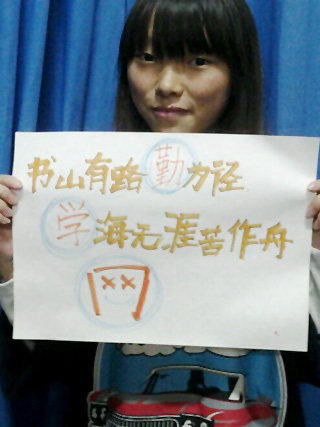 书山有路勤为径
学海无涯苦作舟
网